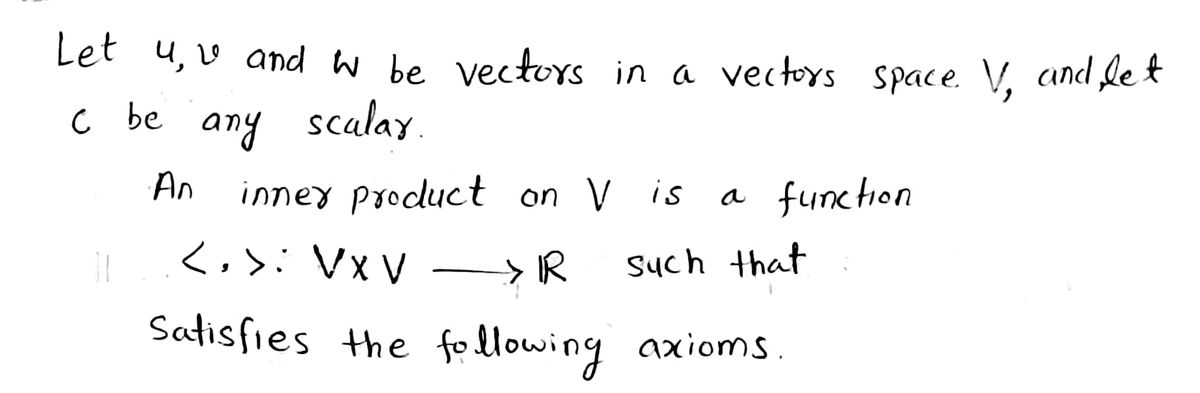 Let u, v and w be vectors in a vectors space V, and let
c be any scalar.
An inner product on V is a function
<,>: V x V ⟶ ℝ such that
Satisfies the following axioms.